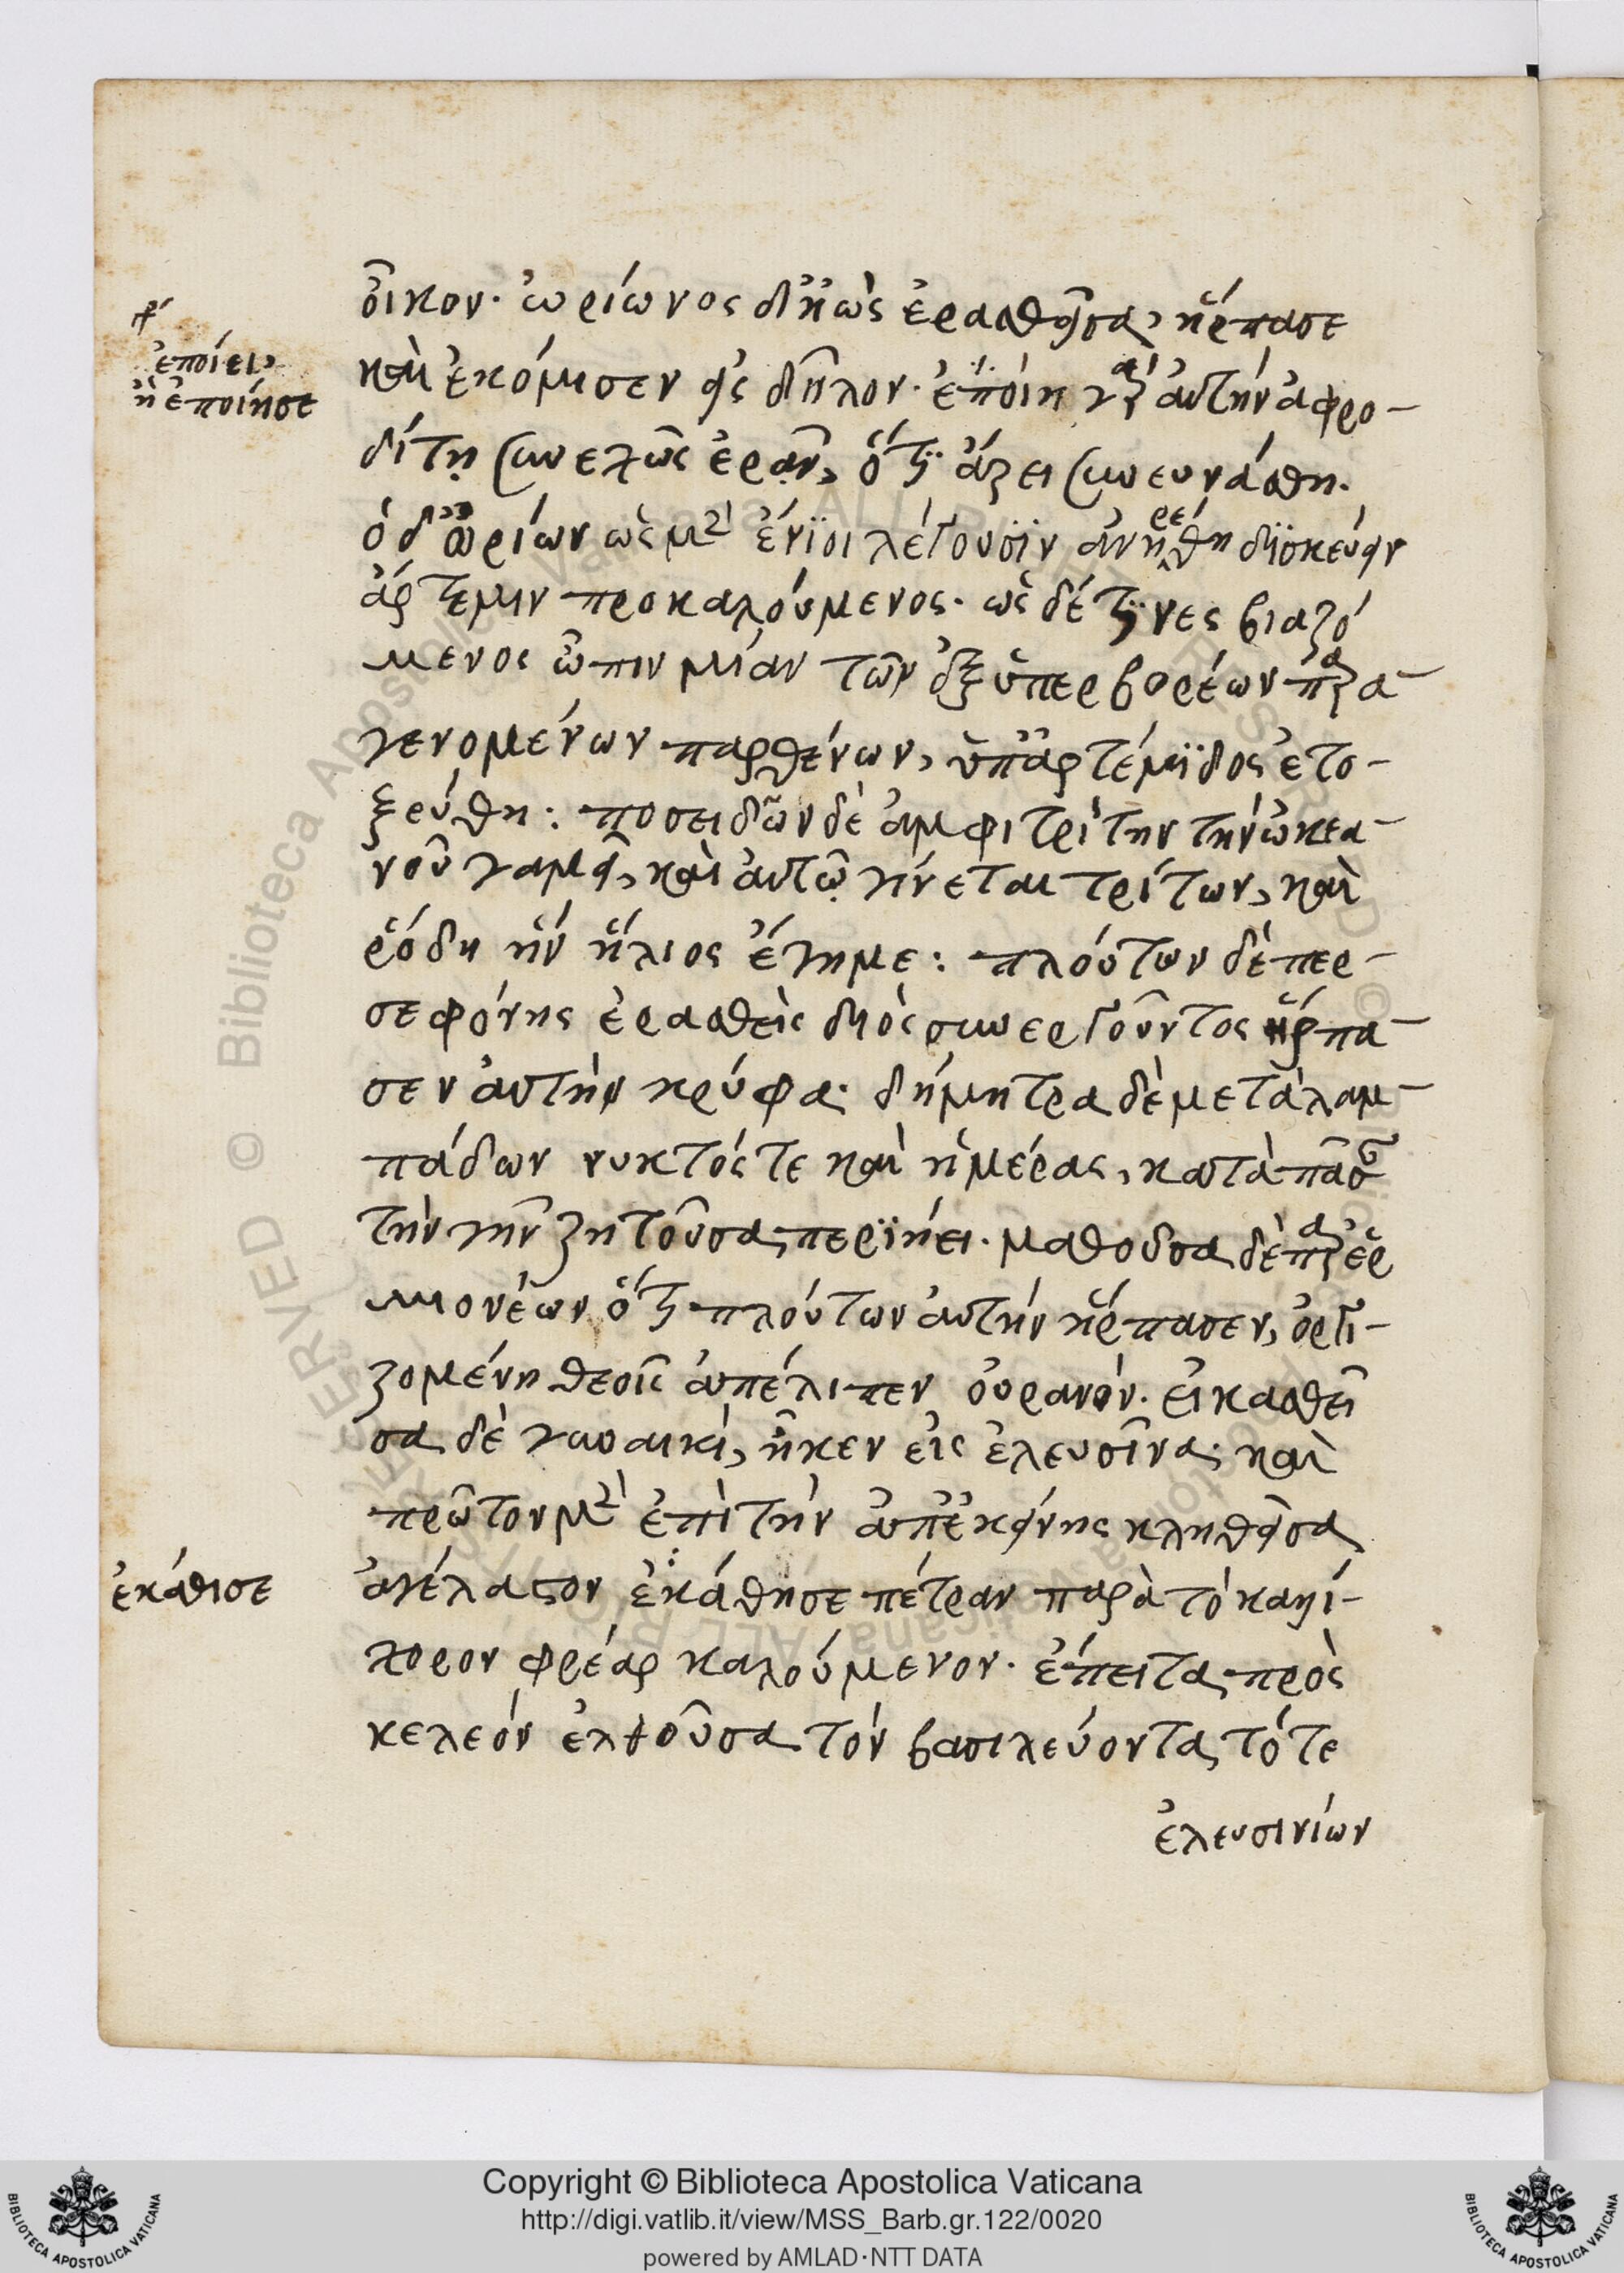 οἶκον· ὠρίωνος δ' ἠὼς ἐρασθεῖσα, ἥρπασε
καὶ ἐκόμισεν εἰς δῆλον· ἐποίη γὰρ αὐτὴν ἀφρο-
δίτη συνεχῶς ἐρᾶν, ὅτι ἄρει συνευνάσθη.
ὁ δ' ὠρίων ὡς μὲν ἔνιοι λέγουσιν ἀνηρέθη δισκεύειν
ἄρτεμιν προκαλούμενος· ὡς δέ τινες βιαζό
μενος ὦπιν μίαν τῶν ἐξ ὑπερβορέων παρα-
γενομένων παρθένων, ὑπ' ἀρτέμιδος ἐτο-
ξεύθη: ποσειδῶν δὲ ἀμφιτρίτην τὴν ὠκεα-
νοῦ γαμεῖ, καὶ αὐτῷ γίνεται τρίτων, καὶ
ῥόδη ἣν ἥλιος ἔγημε: πλούτων δὲ περ-
σεφόνης ἐρασθεὶς διὸς συνεργοῦντος ἥρπα-
σεν αὐτὴν κρύφα· δήμητρα δὲ μετὰ λαμ-
πάδων νυκτός τε καὶ ἡμέρας, κατὰ πᾶσαν
τὴν γῆν ζητοῦσα περιῄει· μαθοῦσα δὲ παρ' ἑρ
μιονέων ὅτι πλούτων αὐτὴν ἥρπασεν, ὀργι-
ζομένη θεοῖς ἀπέλιπεν οὐρανόν· εἰκασθεῖ
σα δὲ γυναικί, ἧκεν εἰς ἐλευσῖνα· καὶ
πρῶτον μὲν ἐπὶ τὴν ἀπ' ἐκείνης κληθεῖσα
ἀγέλαστον ἐκάθησε πέτραν παρὰ τὸ καλλί-
χορον φρέαρ καλούμενον· ἔπειτα πρὸς
κελεὸν ἐλθοῦσα τὸν βασιλεύοντα τότε
ἐλευσινίων
ἐποίει,
ἢ ἐποίησε
ἐκάθισε
Copyright © Biblioteca Apostolica Vaticana
http://digi.vatlib.it/view/MSS_Barb.gr.122/0020
powered by AMLAD·NTT DATA
BIBLIOTECA APOSTOLICA VATICANA
BIBLIOTECA APOSTOLICA VATICANA